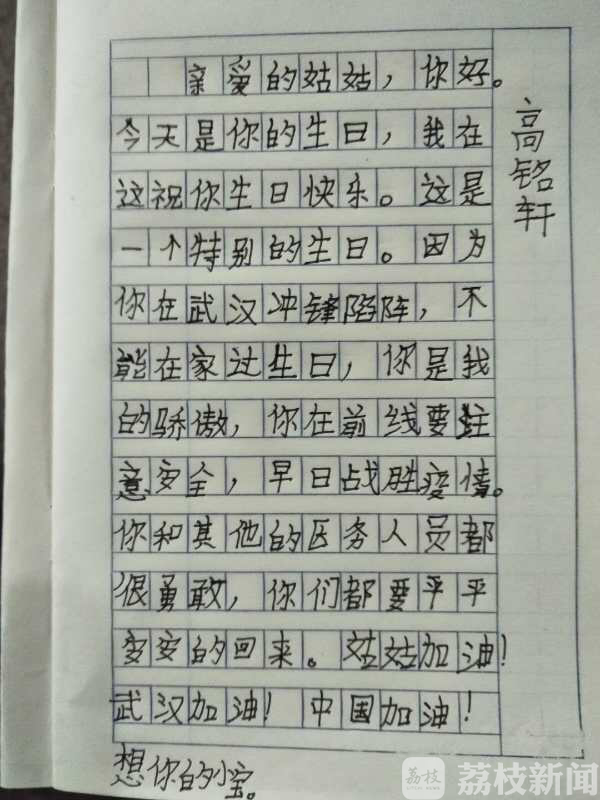 亲爱的姑姑，你好。
今天是你的生日，我在
这祝你生日快乐。这是
一个特别的生日。因为
你在武汉冲锋陷阵，不
能在家过生日，你是我
的骄傲，你在前线要注
意安全，早日战胜疫情。
你和其他的医务人员都
很勇敢，你们都要平平
安安的回来。姑姑加油！
武汉加油！中国加油！
想你的小宝。
高铭轩
荔枝 荔枝新闻